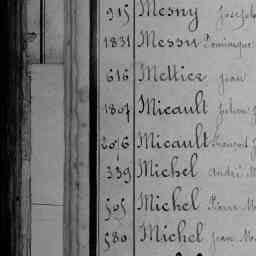 915 Mesny Joseph
1831 Messu Dominique
616 Mettier Jean
1807 Micault Julien
2076 Micault François J
339 Michel André M
505 Michel Pierre M
580 Michel Jean M